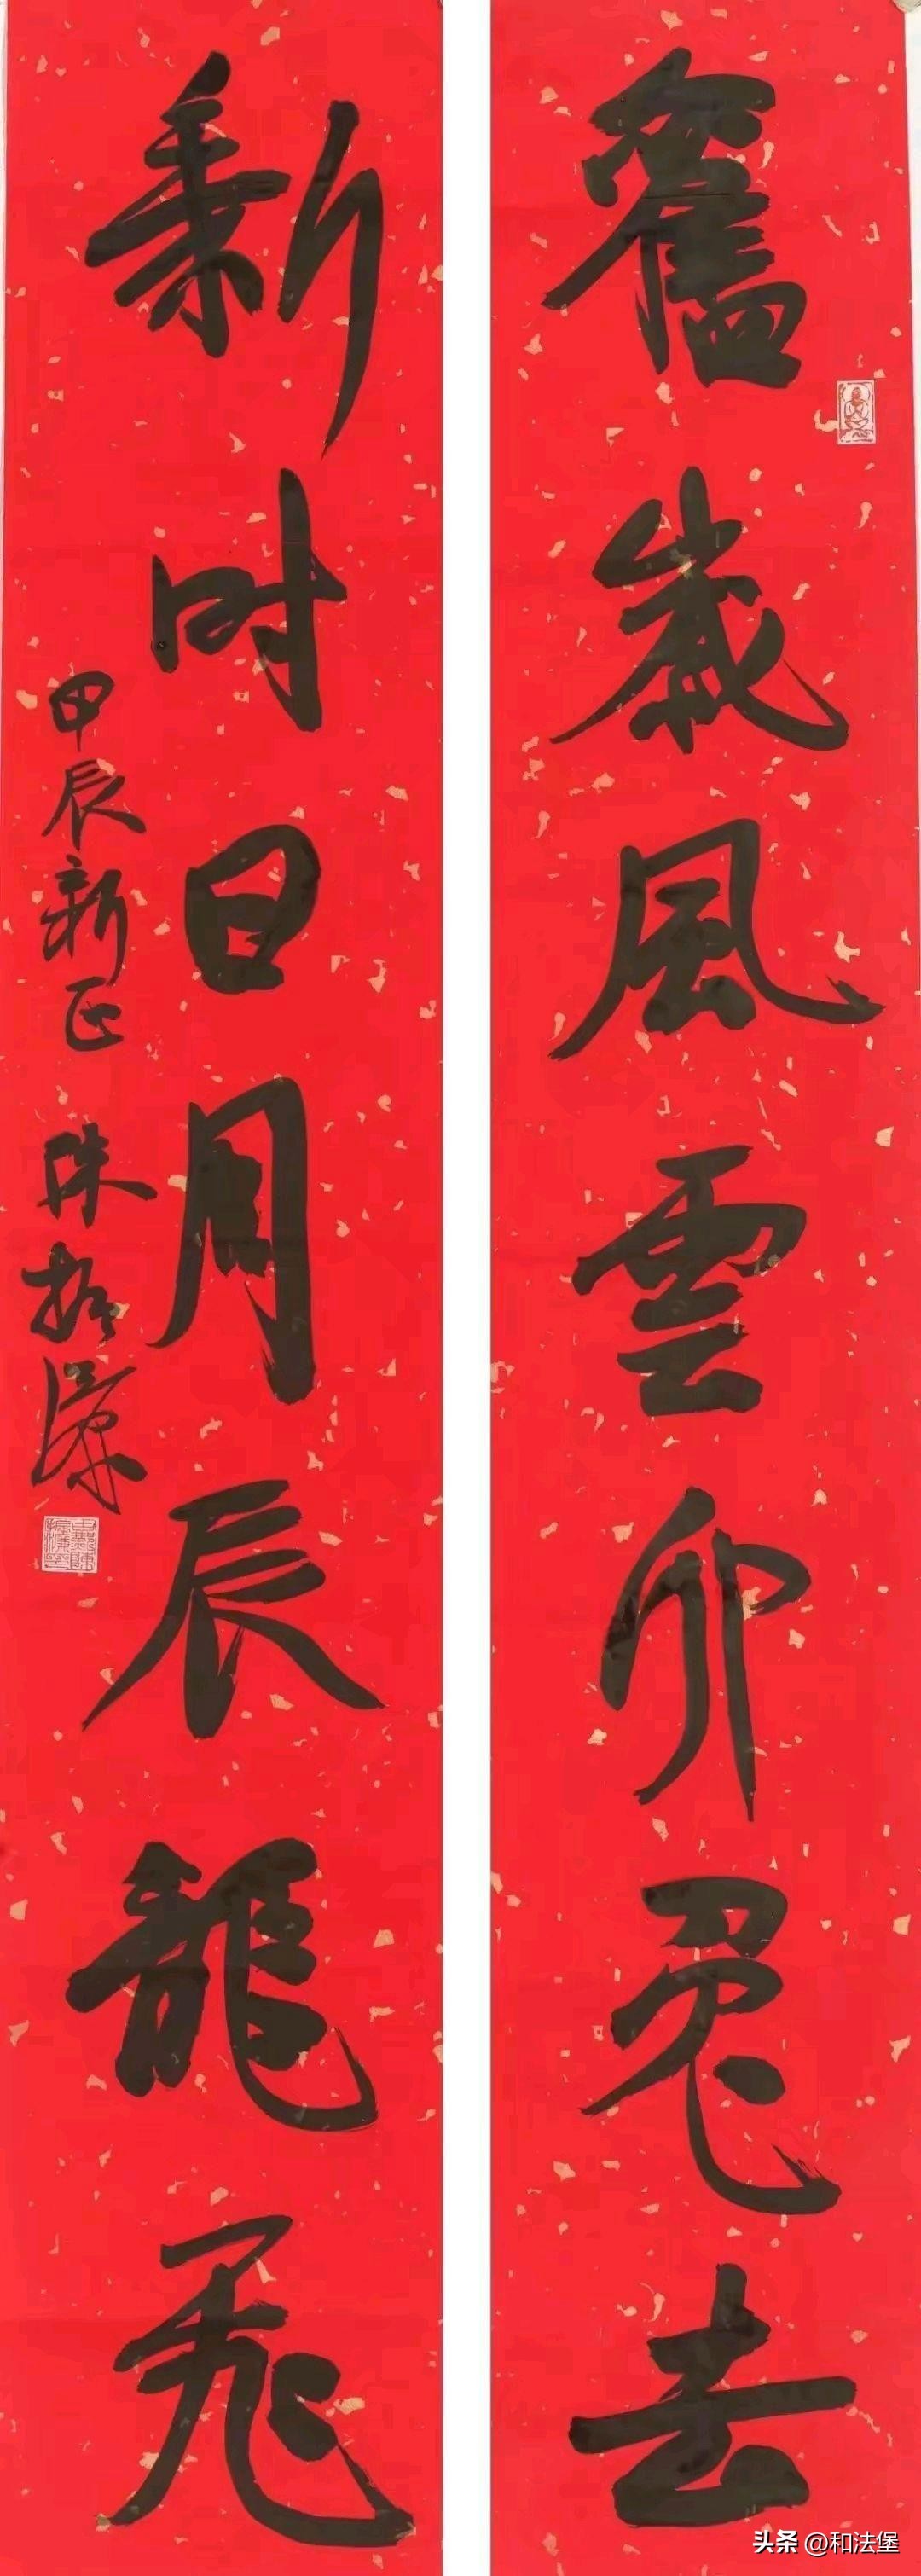 舊歲風雲卯兔去
新时日月辰龍飛
甲辰新正
陳振濂
头条 @和法堡